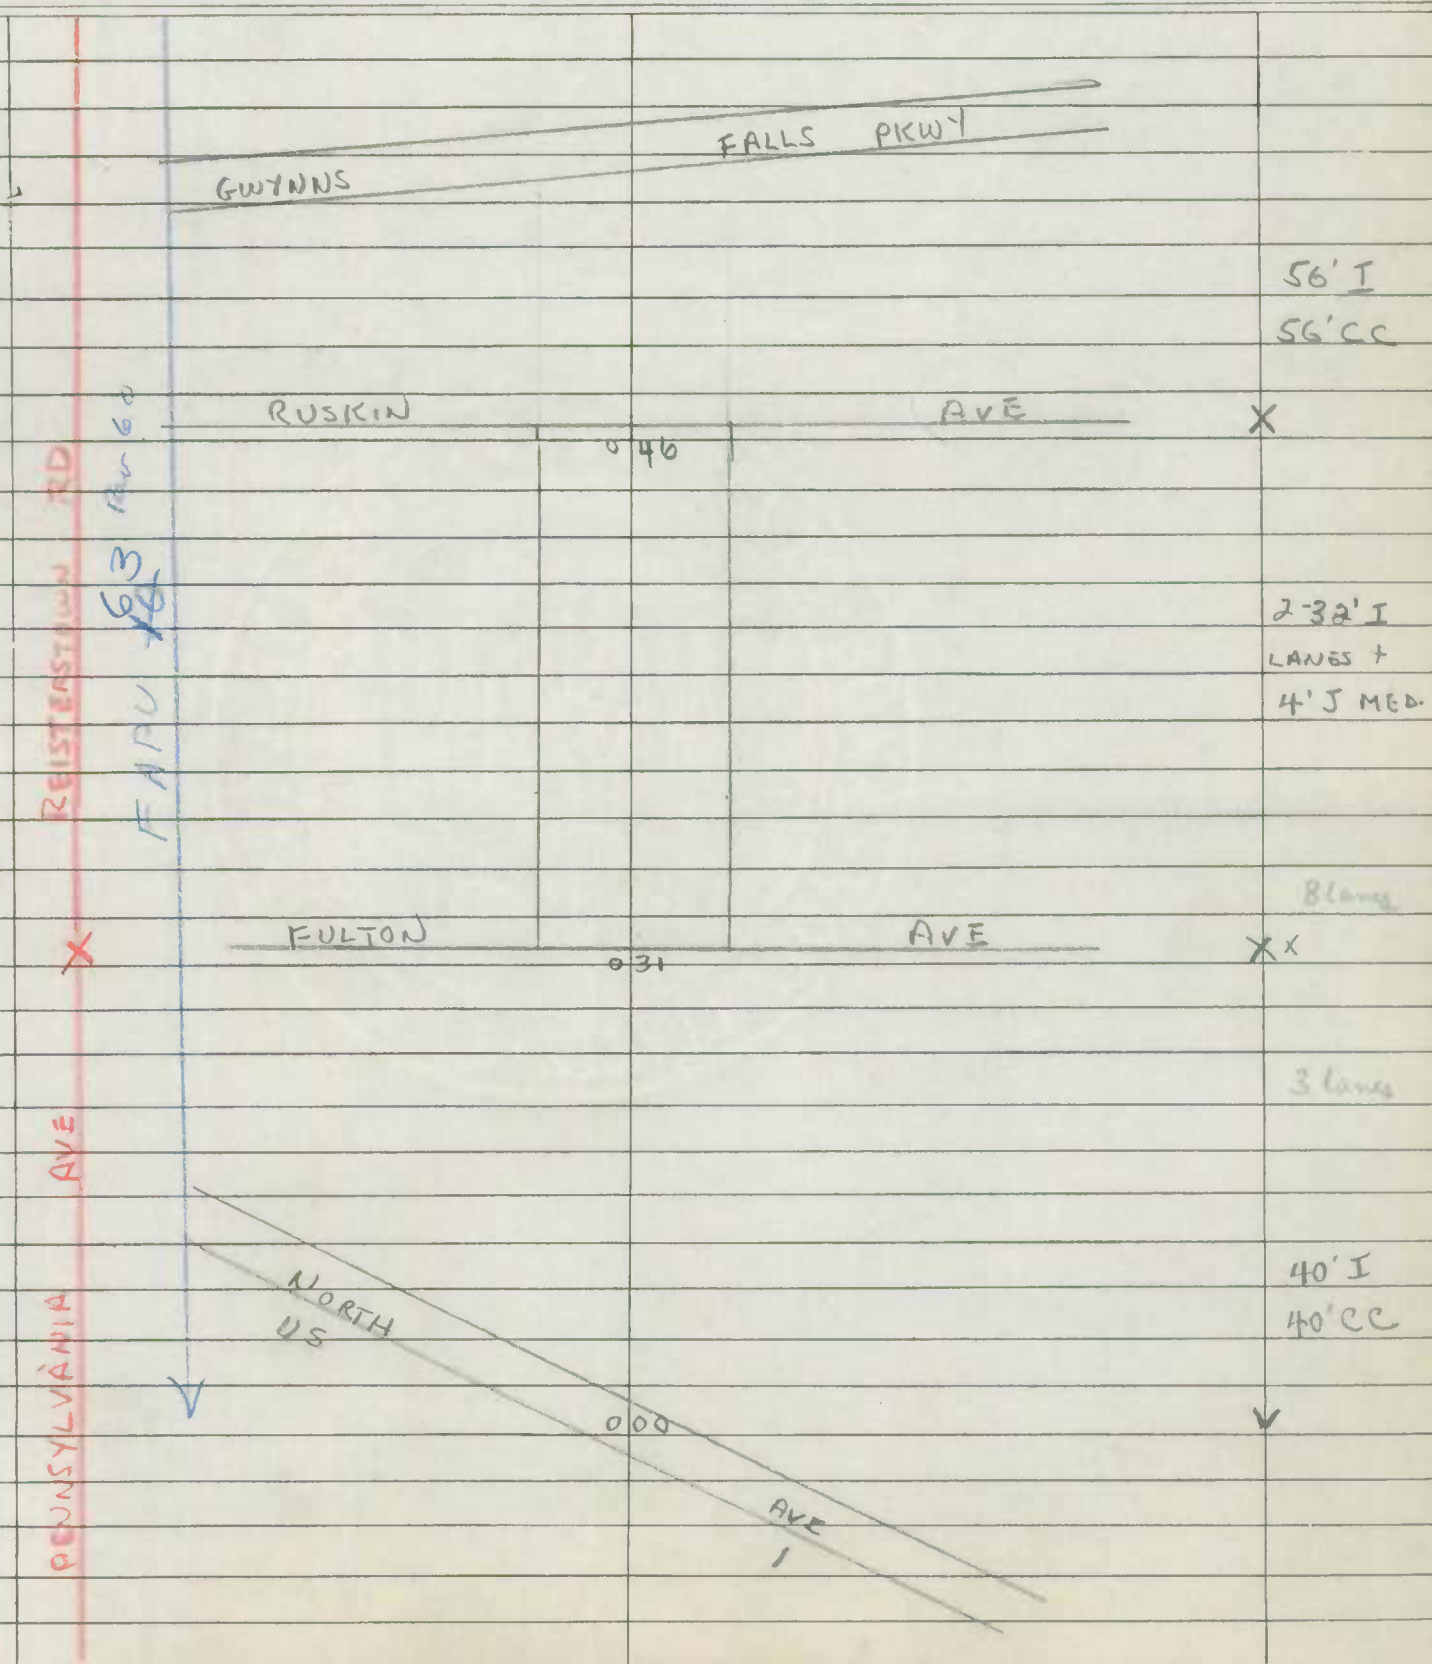 GWYNNS FALLS PKWY
56' I
56' CC
RUSKIN AVE X
0 46
REISTERSTOWN RD
FAPU 63
2-32' I
LANES +
4' J MED.
8 lanes
X FULTON AVE X x
0 31
3 lanes
PENNSYLVANIA AVE
40' I
40' CC
NORTH AVE
US 1
0 00